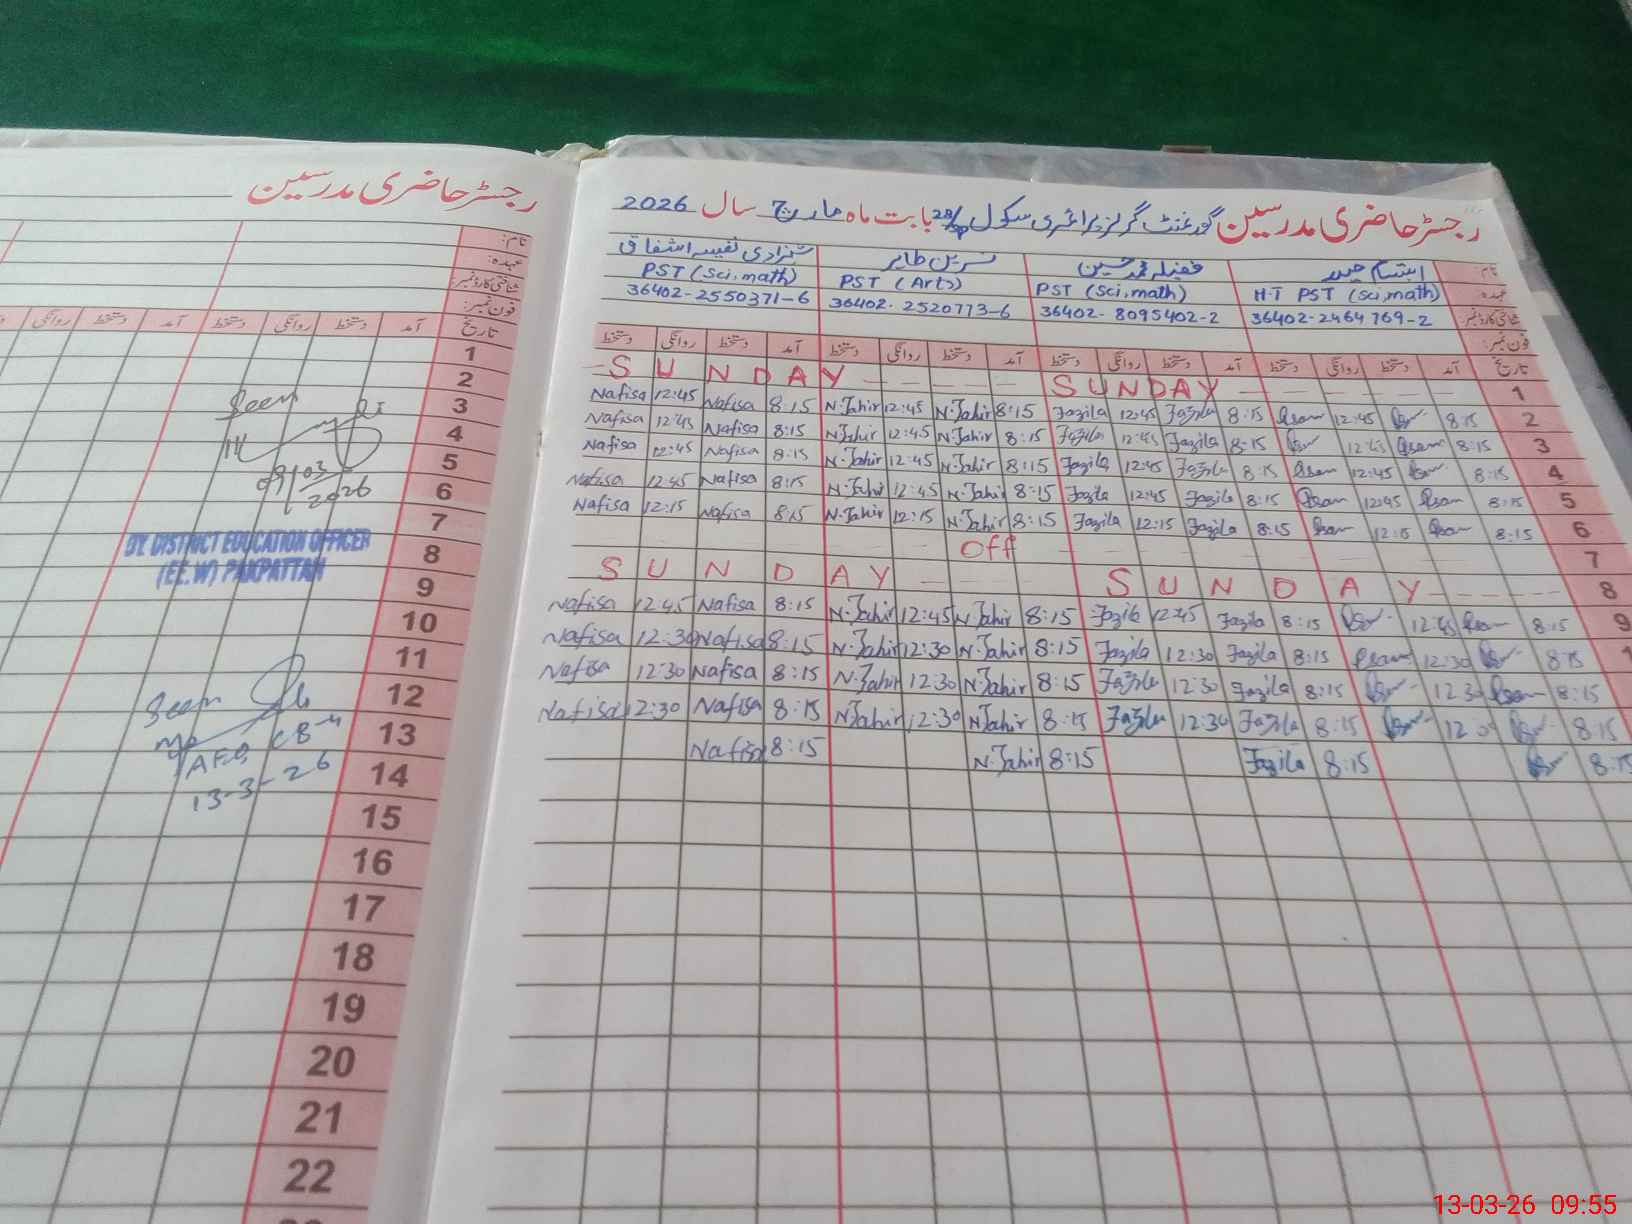 رجسٹر حاضری مدرسین گورنمنٹ گرلز پرائمری سکول 28/SP بابت ماہ مارچ سال 2026
نام: ابتسام حیدر فضیلہ محمد حسین نسرین طاہر شہزادی نفیسہ اشفاق
عہدہ: H.T PST (Sci,math) PST (Sci,math) PST (Arts) PST (Sci,math)
شناختی کارڈ نمبر: 36402-2464769-2 36402-8095402-2 36402-2520773-6 36402-2550371-6
فون نمبر:
تاریخ آمد دستخط روانگی دستخط آمد دستخط روانگی دستخط آمد دستخط روانگی دستخط آمد دستخط روانگی دستخط
SUNDAY SUNDAY 1
Nafisa 12:45 Nafisa 8:15 N.Tahir 12:45 N.Tahir 8:15 Fazila 12:45 Fazila 8:15 12:45 8:15 2
Nafisa 12:45 Nafisa 8:15 N.Tahir 12:45 N.Tahir 8:15 Fazila 12:45 Fazila 8:15 12:45 8:15 3
Nafisa 12:45 Nafisa 8:15 N.Tahir 12:45 N.Tahir 8:15 Fazila 12:45 Fazila 8:15 12:45 8:15 4
Nafisa 12:45 Nafisa 8:15 N.Tahir 12:45 N.Tahir 8:15 Fazila 12:45 Fazila 8:15 12:45 8:15 5
Nafisa 12:15 Nafisa 8:15 N.Tahir 12:15 N.Tahir 8:15 Fazila 12:15 Fazila 8:15 12:15 8:15 6
Off 7
SUNDAY SUNDAY 8
Nafisa 12:45 Nafisa 8:15 N.Tahir 12:45 N.Tahir 8:15 Fazila 12:45 Fazila 8:15 12:45 8:15 9
Nafisa 12:30 Nafisa 8:15 N.Tahir 12:30 N.Tahir 8:15 Fazila 12:30 Fazila 8:15 12:30 8:15 1
Nafisa 12:30 Nafisa 8:15 N.Tahir 12:30 N.Tahir 8:15 Fazila 12:30 Fazila 8:15 12:30 8:15
Nafisa 12:30 Nafisa 8:15 N.Tahir 12:30 N.Tahir 8:15 Fazila 12:30 Fazila 8:15 8:15
Nafisa 8:15 N.Tahir 8:15 Fazila 8:15 8:15
رجسٹر حاضری مدرسین
نام:
عہدہ:
شناختی کارڈ نمبر:
فون نمبر:
تاریخ آمد دستخط روانگی دستخط آمد دستخط روانگی
1
2
3
4
5
6
7
8
9
10
11
12
13
14
15
16
17
18
19
20
21
22
Seen
09/03/2026
DY. DISTRICT EDUCATION OFFICER
(EE.W) PAKPATTAN
Seen
13-3-26
13-03-26 09:55